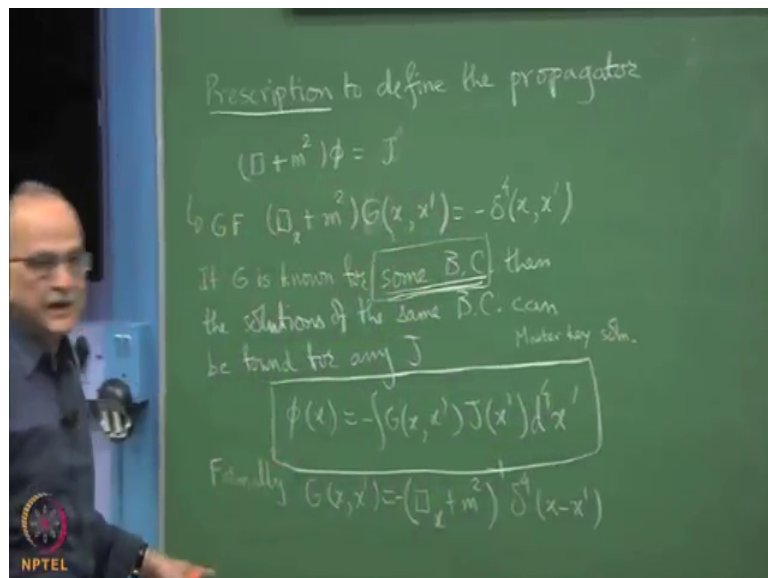 Prescription to define the propagator
(□ + m²)ϕ = J
↳ GF (□ₓ + m²)G(x, x') = -δ⁴(x, x')
If G is known for some B.C. then
the solutions of the same B.C. can
be found for any J
Master key soln.
ϕ(x) = -∫G(x, x') J(x') d⁴x'
Formally G(x, x') = -(□ₓ + m²)⁻¹ δ⁴(x - x')
NPTEL